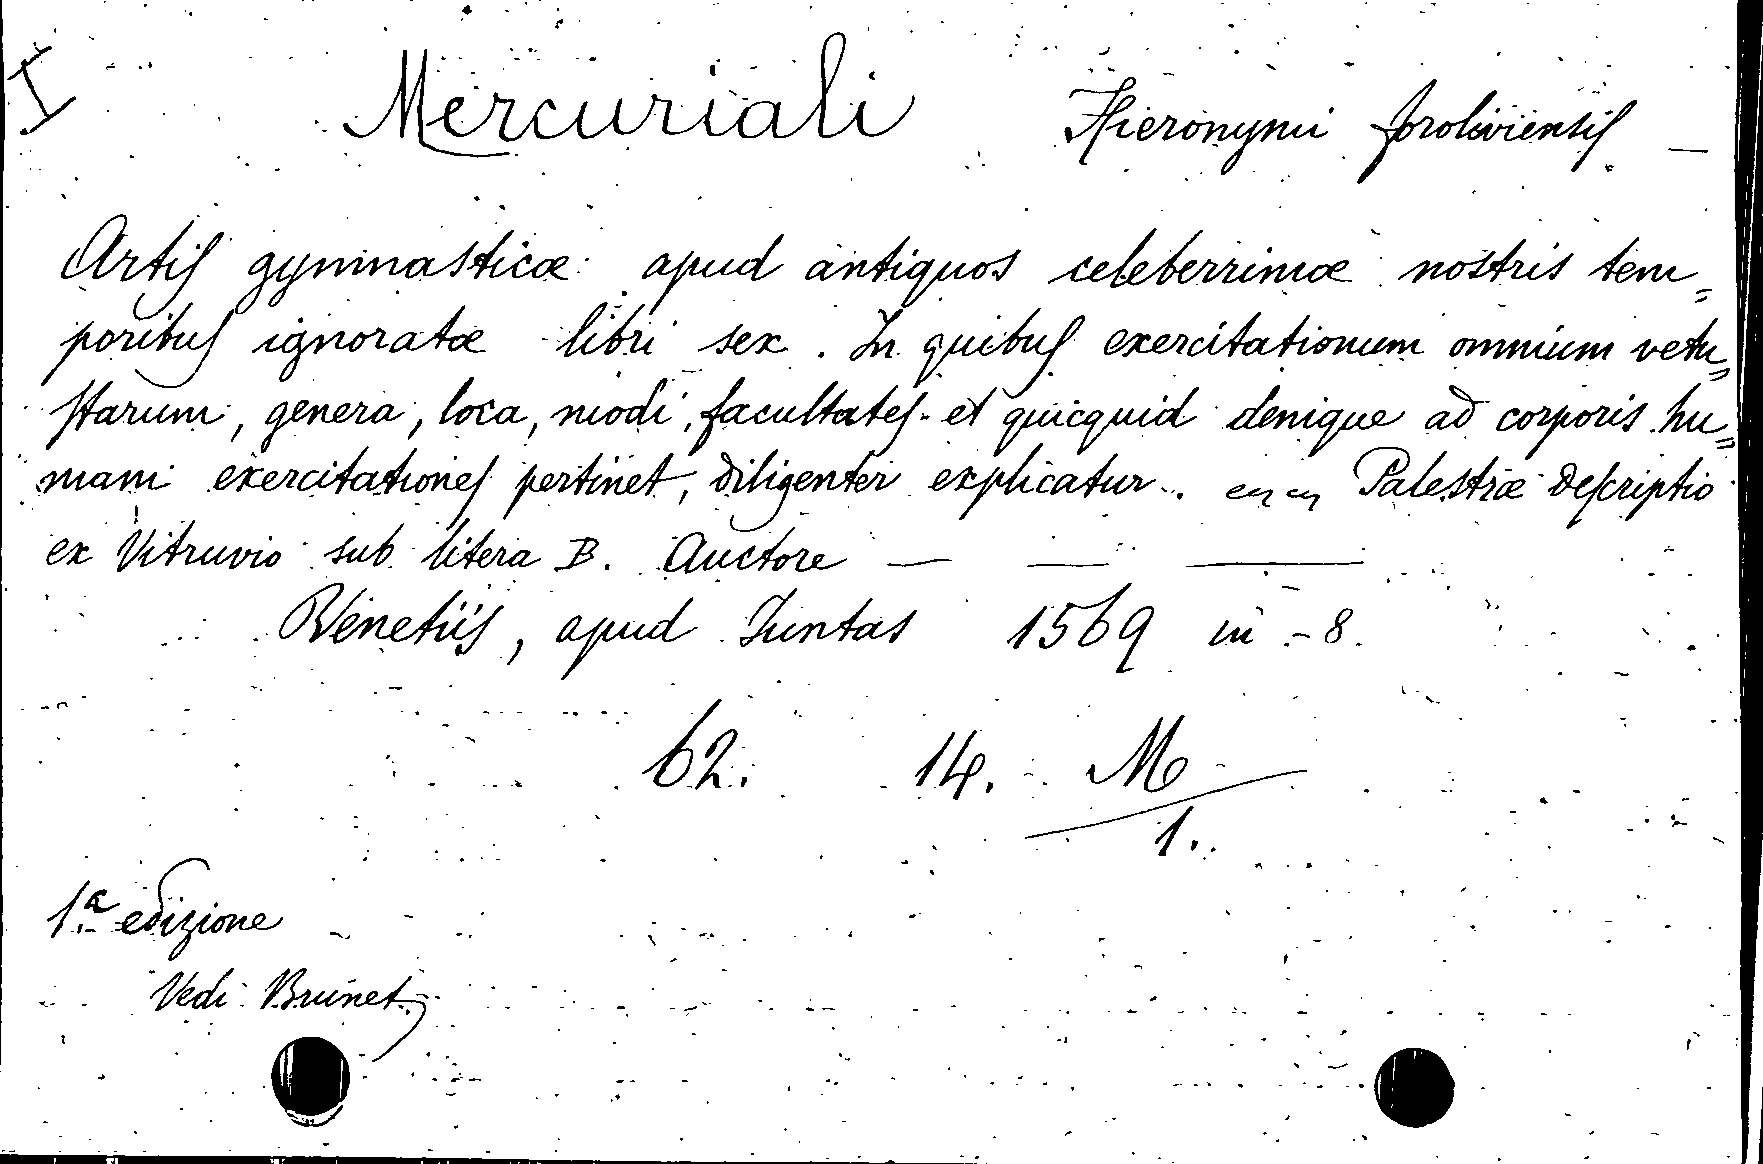 I
Mercuriali Hieronymi foroliviensis —
Artis gymnasticæ apud antiquos celeberrimæ nostris tem=
poribus ignoratæ libri sex. In quibus exercitationum omnium vetu=
starum, genera, loca, modi, facultates et quicquid denique ad corporis hu=
mani exercitationes pertinet, diligenter explicatur. Palestræ descriptio
ex Vitruvio sub litera B. Auctore — — —
Venetiis, apud Juntas 1569 in-8.
62. 14. M
1.
1.ª edizione
Vedi Brunet